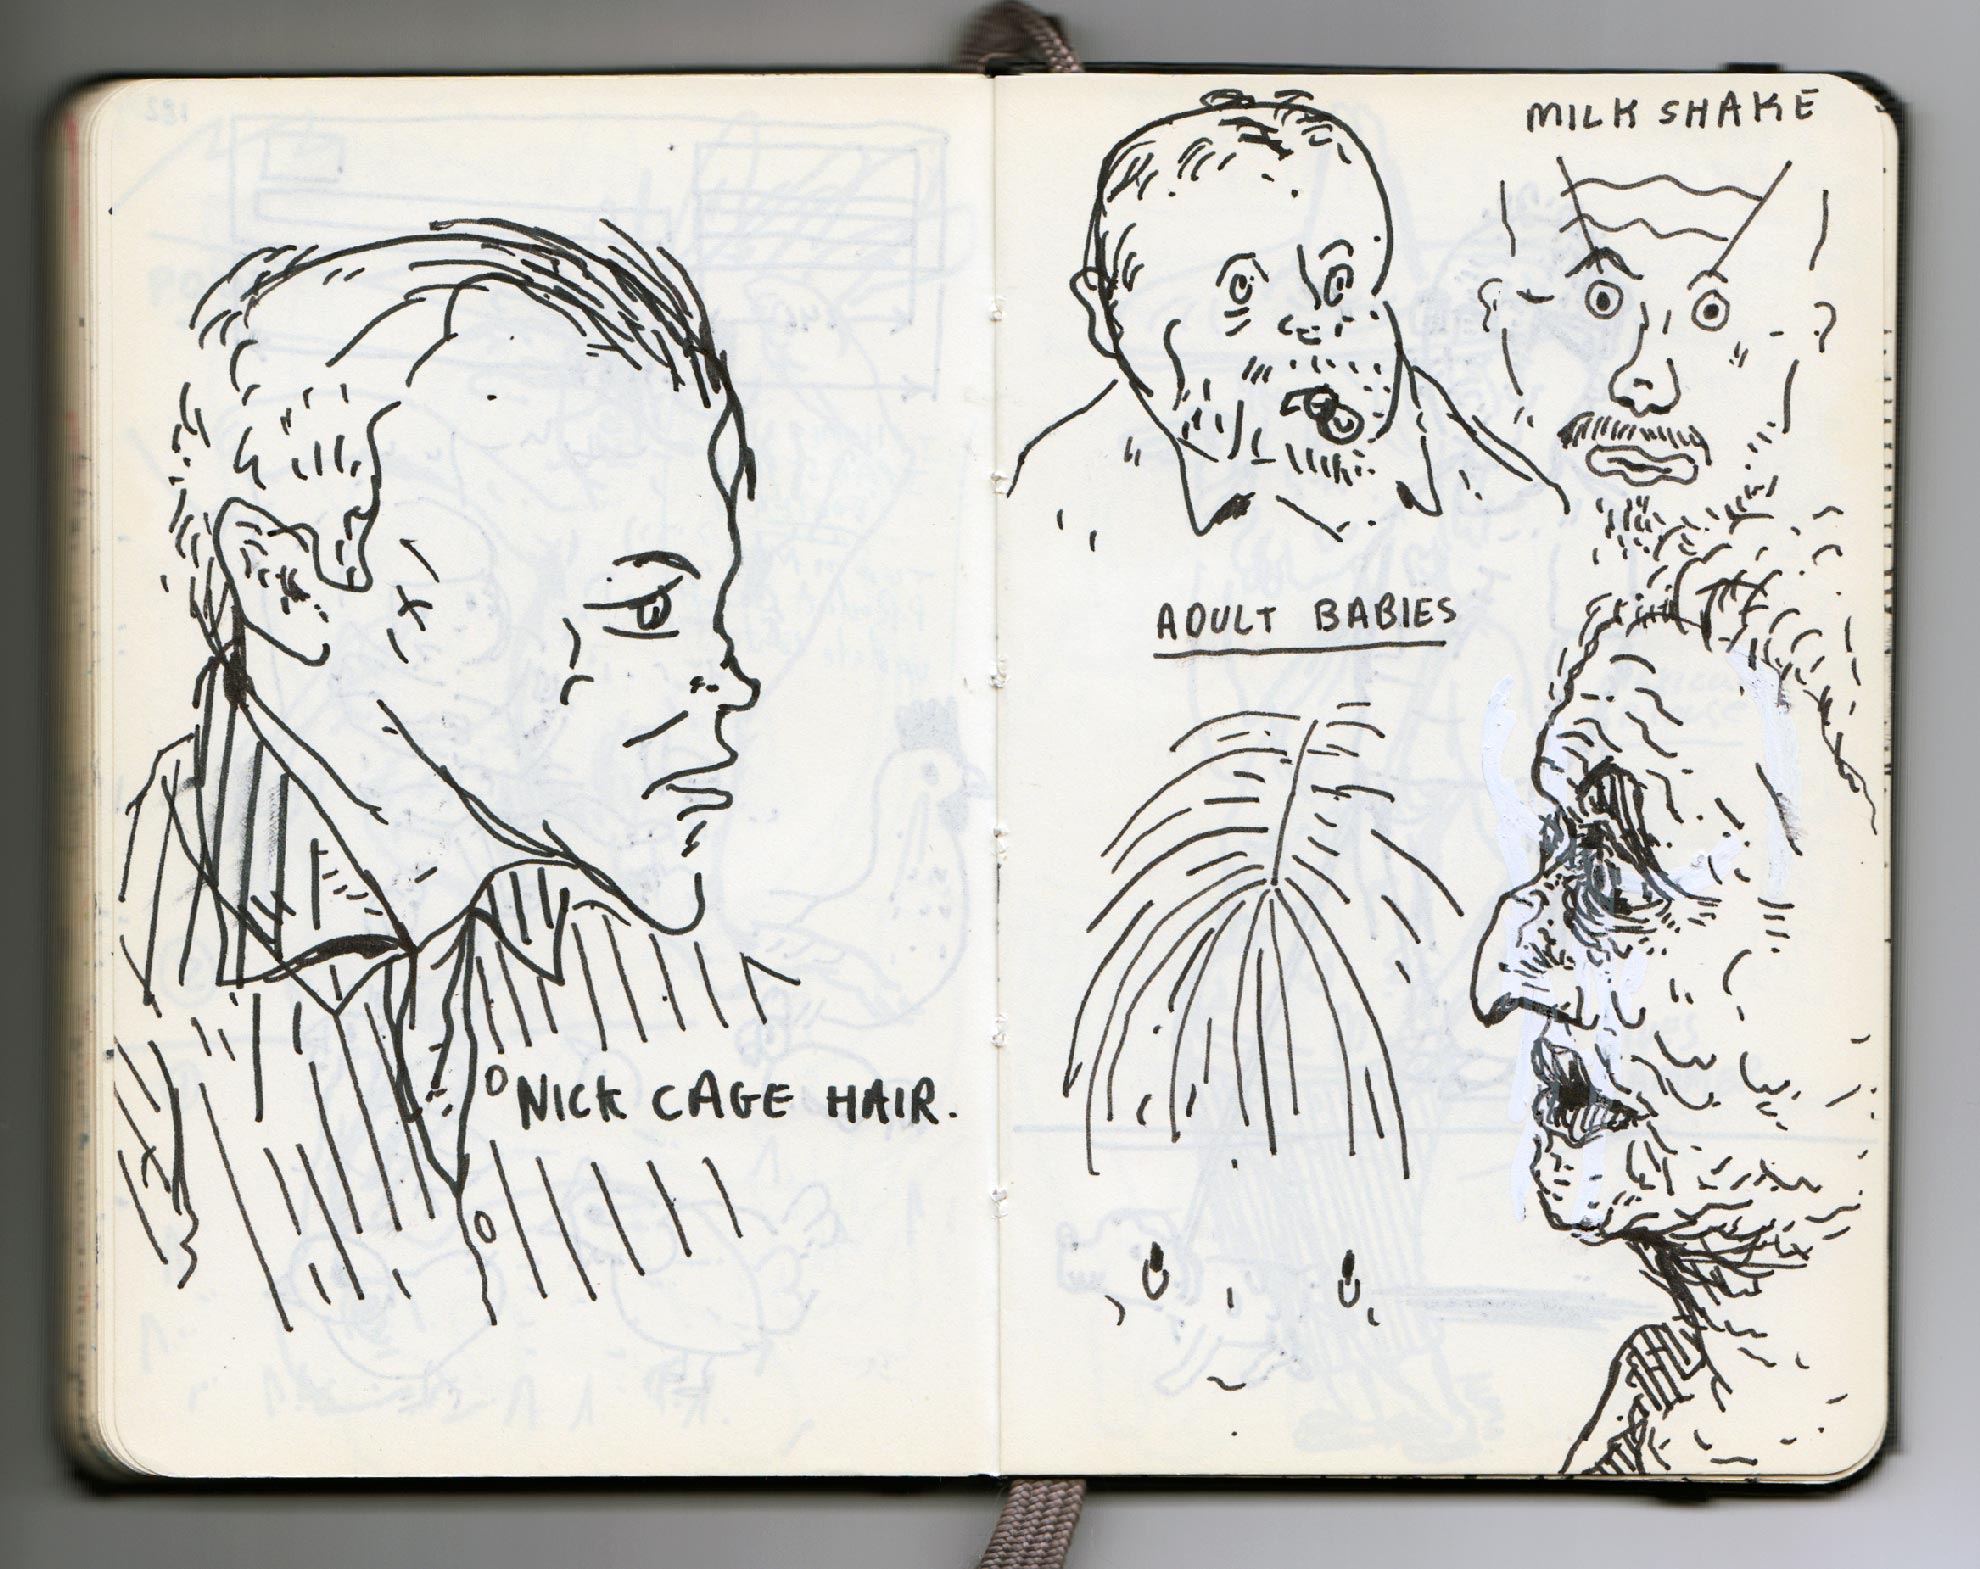 NICK CAGE HAIR.
MILKSHAKE
ADULT BABIES